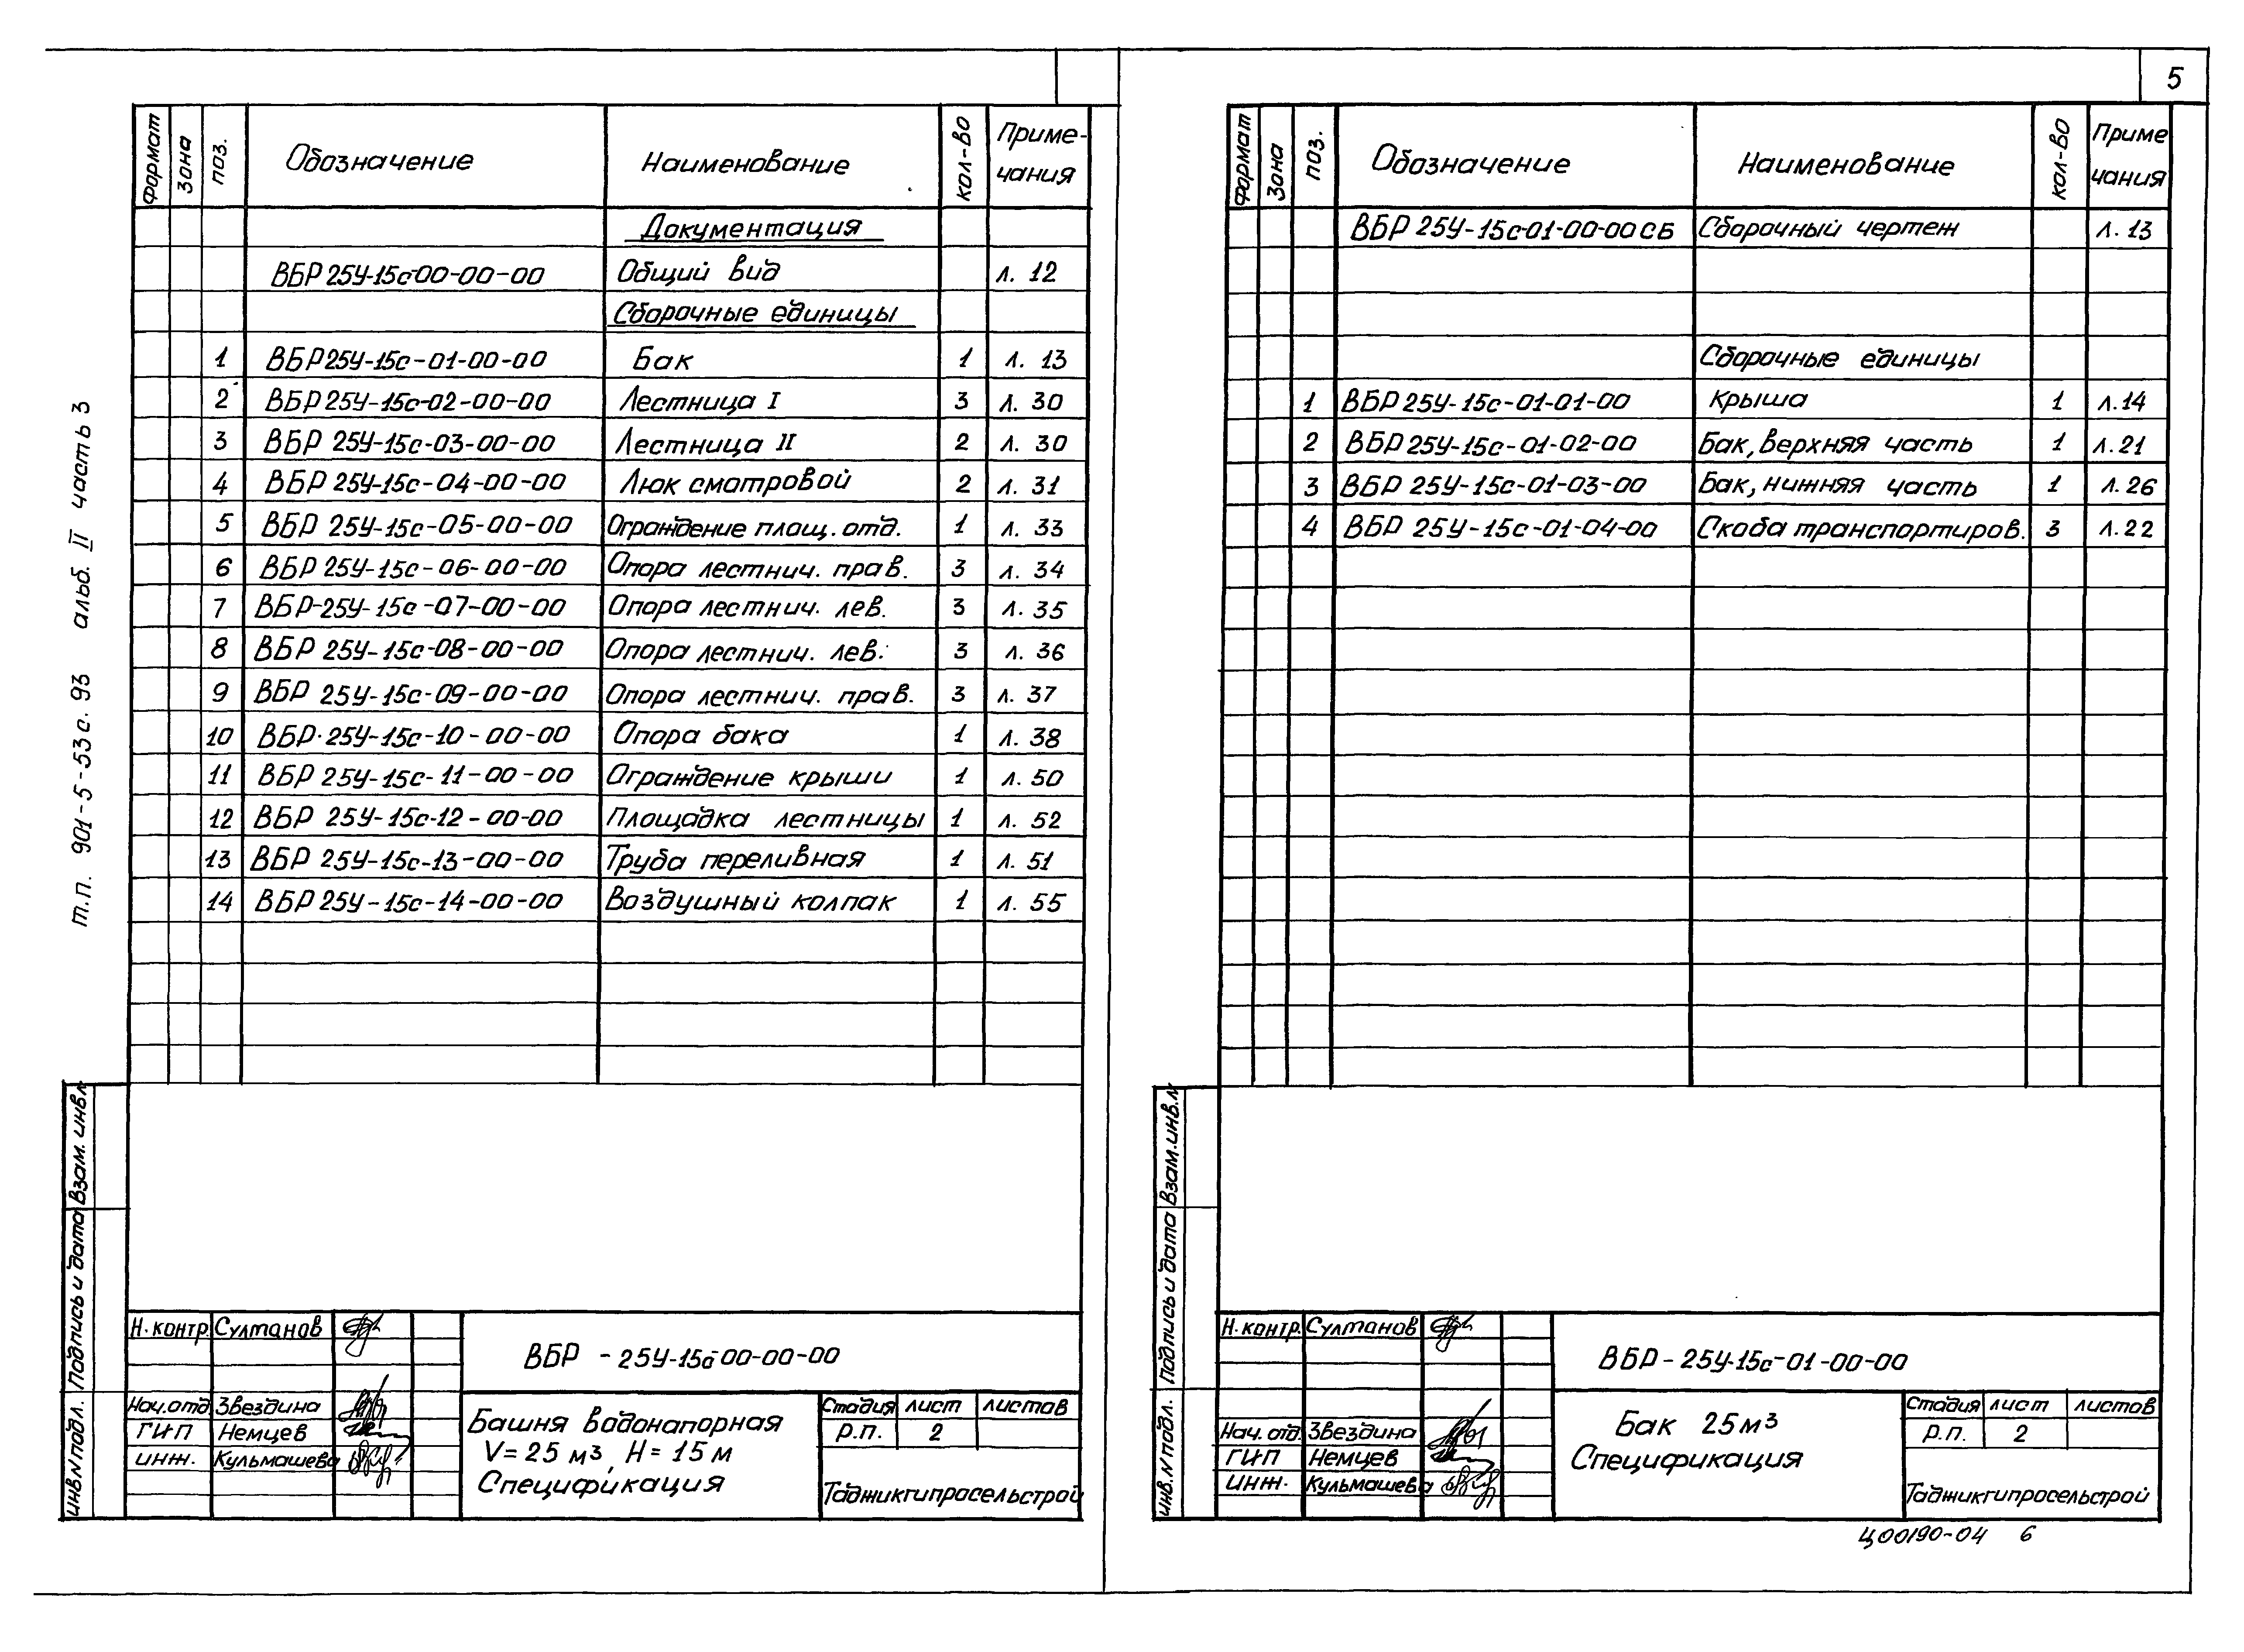 5
т.п. 901-5-53с.93 альб. II часть 3
Формат Зона поз. Обозначение Наименование кол-во Приме-чания
Документация
ВБР 25У-15с-00-00-00 Общий вид л. 12
Сборочные единицы
1 ВБР 25У-15с-01-00-00 Бак 1 л. 13
2 ВБР 25У-15с-02-00-00 Лестница I 3 л. 30
3 ВБР 25У-15с-03-00-00 Лестница II 2 л. 30
4 ВБР 25У-15с-04-00-00 Люк смотровой 2 л. 31
5 ВБР 25У-15с-05-00-00 Ограждение площ. отд. 1 л. 33
6 ВБР 25У-15с-06-00-00 Опора лестнич. прав. 3 л. 34
7 ВБР-25У-15с-07-00-00 Опора лестнич. лев. 3 л. 35
8 ВБР 25У-15с-08-00-00 Опора лестнич. лев. 3 л. 36
9 ВБР 25У-15с-09-00-00 Опора лестнич. прав. 3 л. 37
10 ВБР 25У-15с-10-00-00 Опора бака 1 л. 38
11 ВБР 25У-15с-11-00-00 Ограждение крыши 1 л. 50
12 ВБР 25У-15с-12-00-00 Площадка лестницы 1 л. 52
13 ВБР 25У-15с-13-00-00 Труба переливная 1 л. 51
14 ВБР 25У-15с-14-00-00 Воздушный колпак 1 л. 55
Взам. инв. N
Подпись и дата
Инв. N подл.
Н. контр. Султанов
ВБР - 25У-15с-00-00-00
Нач. отд. Звездина
ГИП Немцев
инж. Кульмашева
Башня водонапорная
V=25 м3, H=15 м
Спецификация
Стадия лист листов
Р.П. 2
Таджикгипросельстрой
Формат Зона поз. Обозначение Наименование кол-во Приме чания
ВБР 25У-15с-01-00-00СБ Сборочный чертеж л. 13
Сборочные единицы
1 ВБР 25У-15с-01-01-00 Крыша 1 л. 14
2 ВБР 25У-15с-01-02-00 Бак, верхняя часть 1 л. 21
3 ВБР 25У-15с-01-03-00 Бак, нижняя часть 1 л. 26
4 ВБР 25У-15с-01-04-00 Скоба транспортиров. 3 л. 22
Взам. инв. N
Подпись и дата
Инв. N подл.
Н. контр. Султанов
ВБР-25У-15с-01-00-00
Нач. отд. Звездина
ГИП Немцев
инж. Кульмашева
Бак 25м3
Спецификация
Стадия лист листов
Р.П. 2
Таджикгипросельстрой
Ц00190-04 6